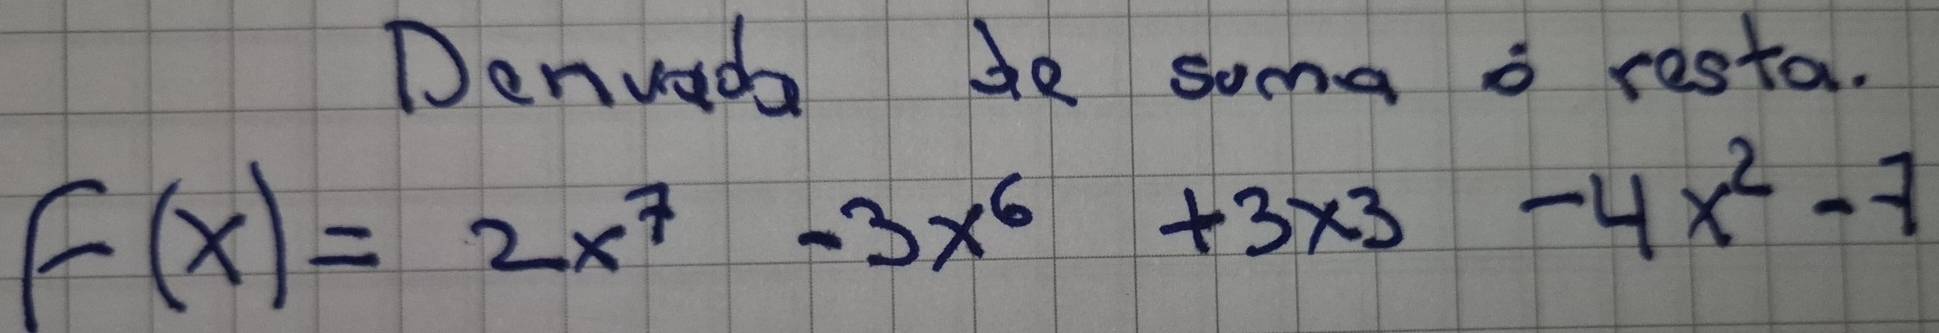 Derivada de suma ó resta.
F(x) = 2x⁷ -3x⁶ +3x3 -4x² -7